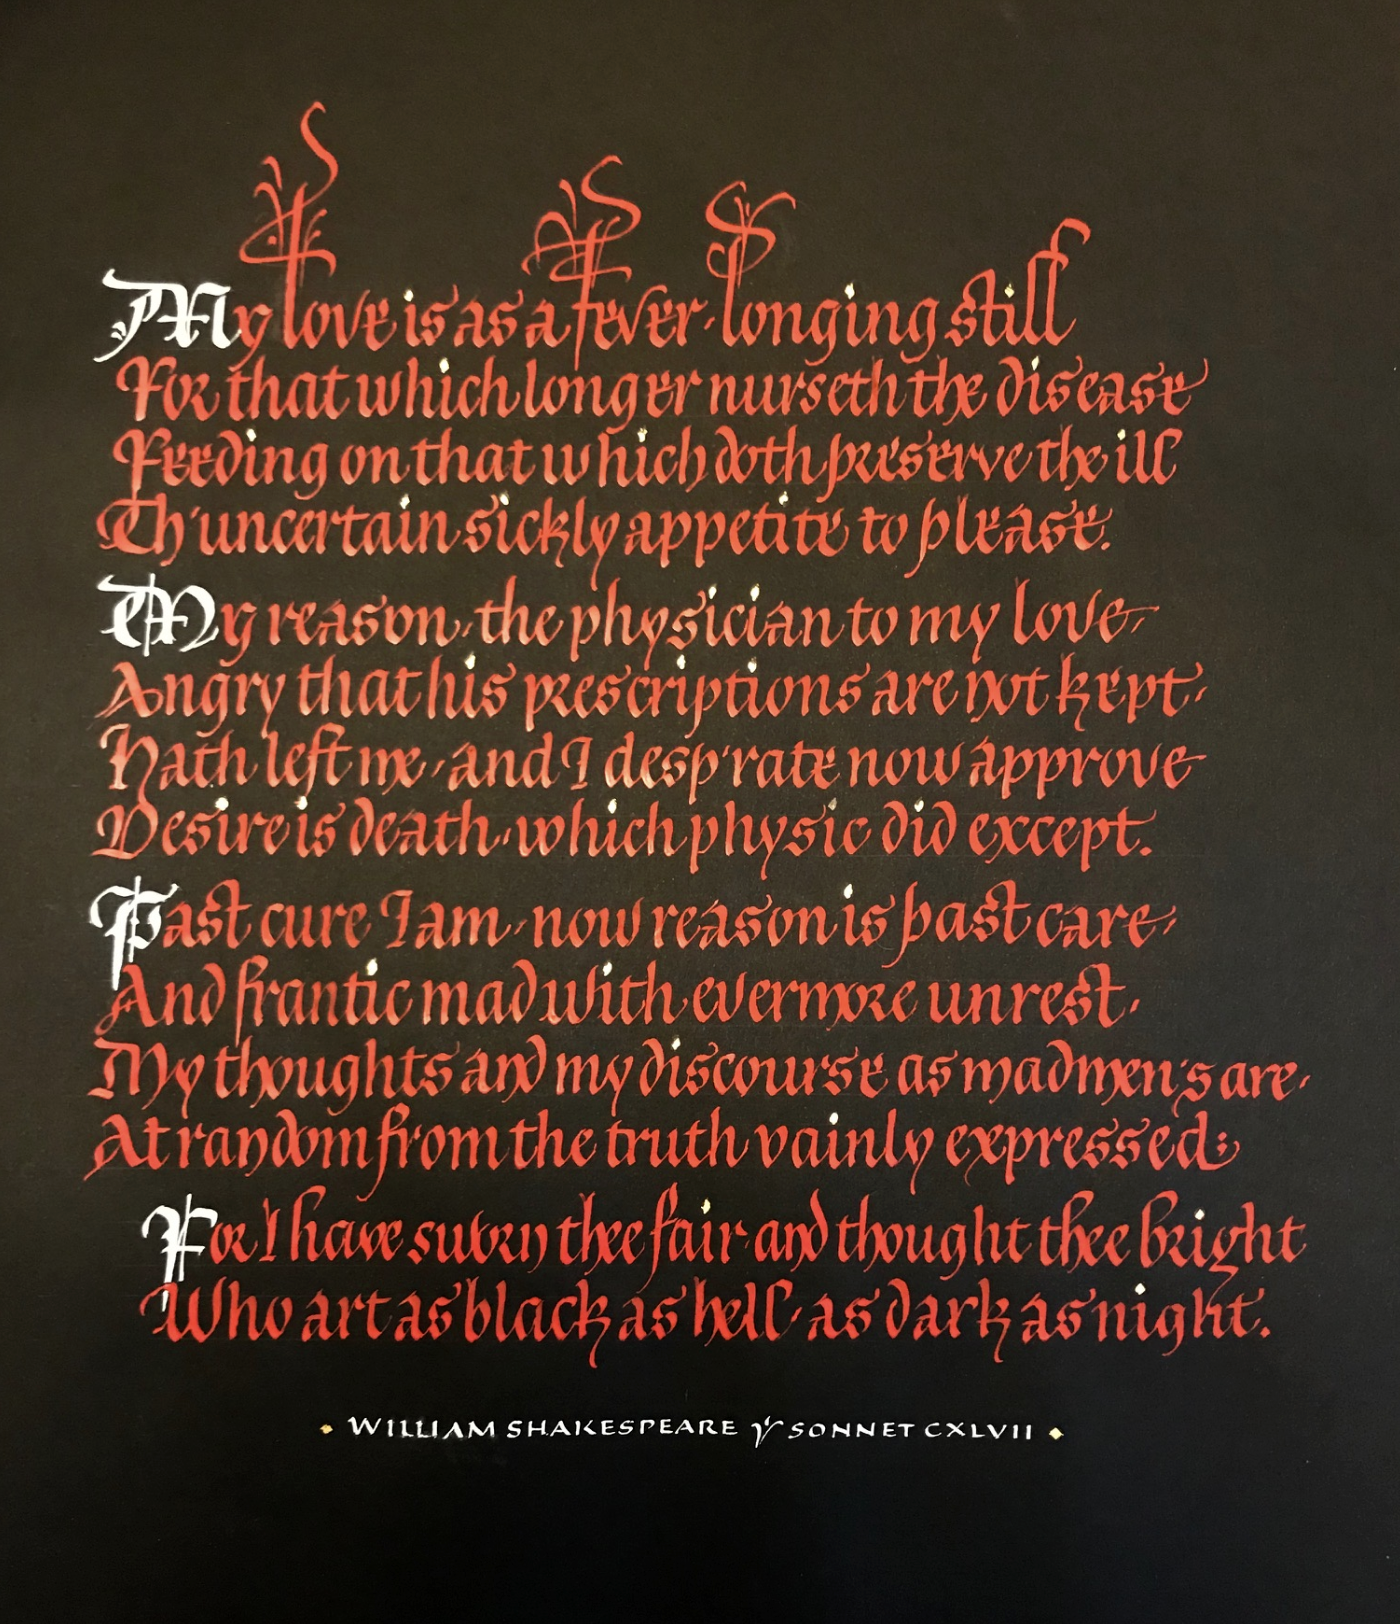 My love is as a fever, longing still
For that which longer nurseth the disease
Feeding on that which doth preserve the ill
Th'uncertain sickly appetite to please.
My reason, the physician to my love,
Angry that his prescriptions are not kept,
Hath left me, and I desp'rate now approve
Desire is death, which physic did except.
Past cure I am, now reason is past care,
And frantic mad with evermore unrest,
My thoughts and my discourse as madmen's are,
At random from the truth vainly expressed;
For I have sworn thee fair and thought thee bright
Who art as black as hell, as dark as night.
WILLIAM SHAKESPEARE SONNET CXLVII